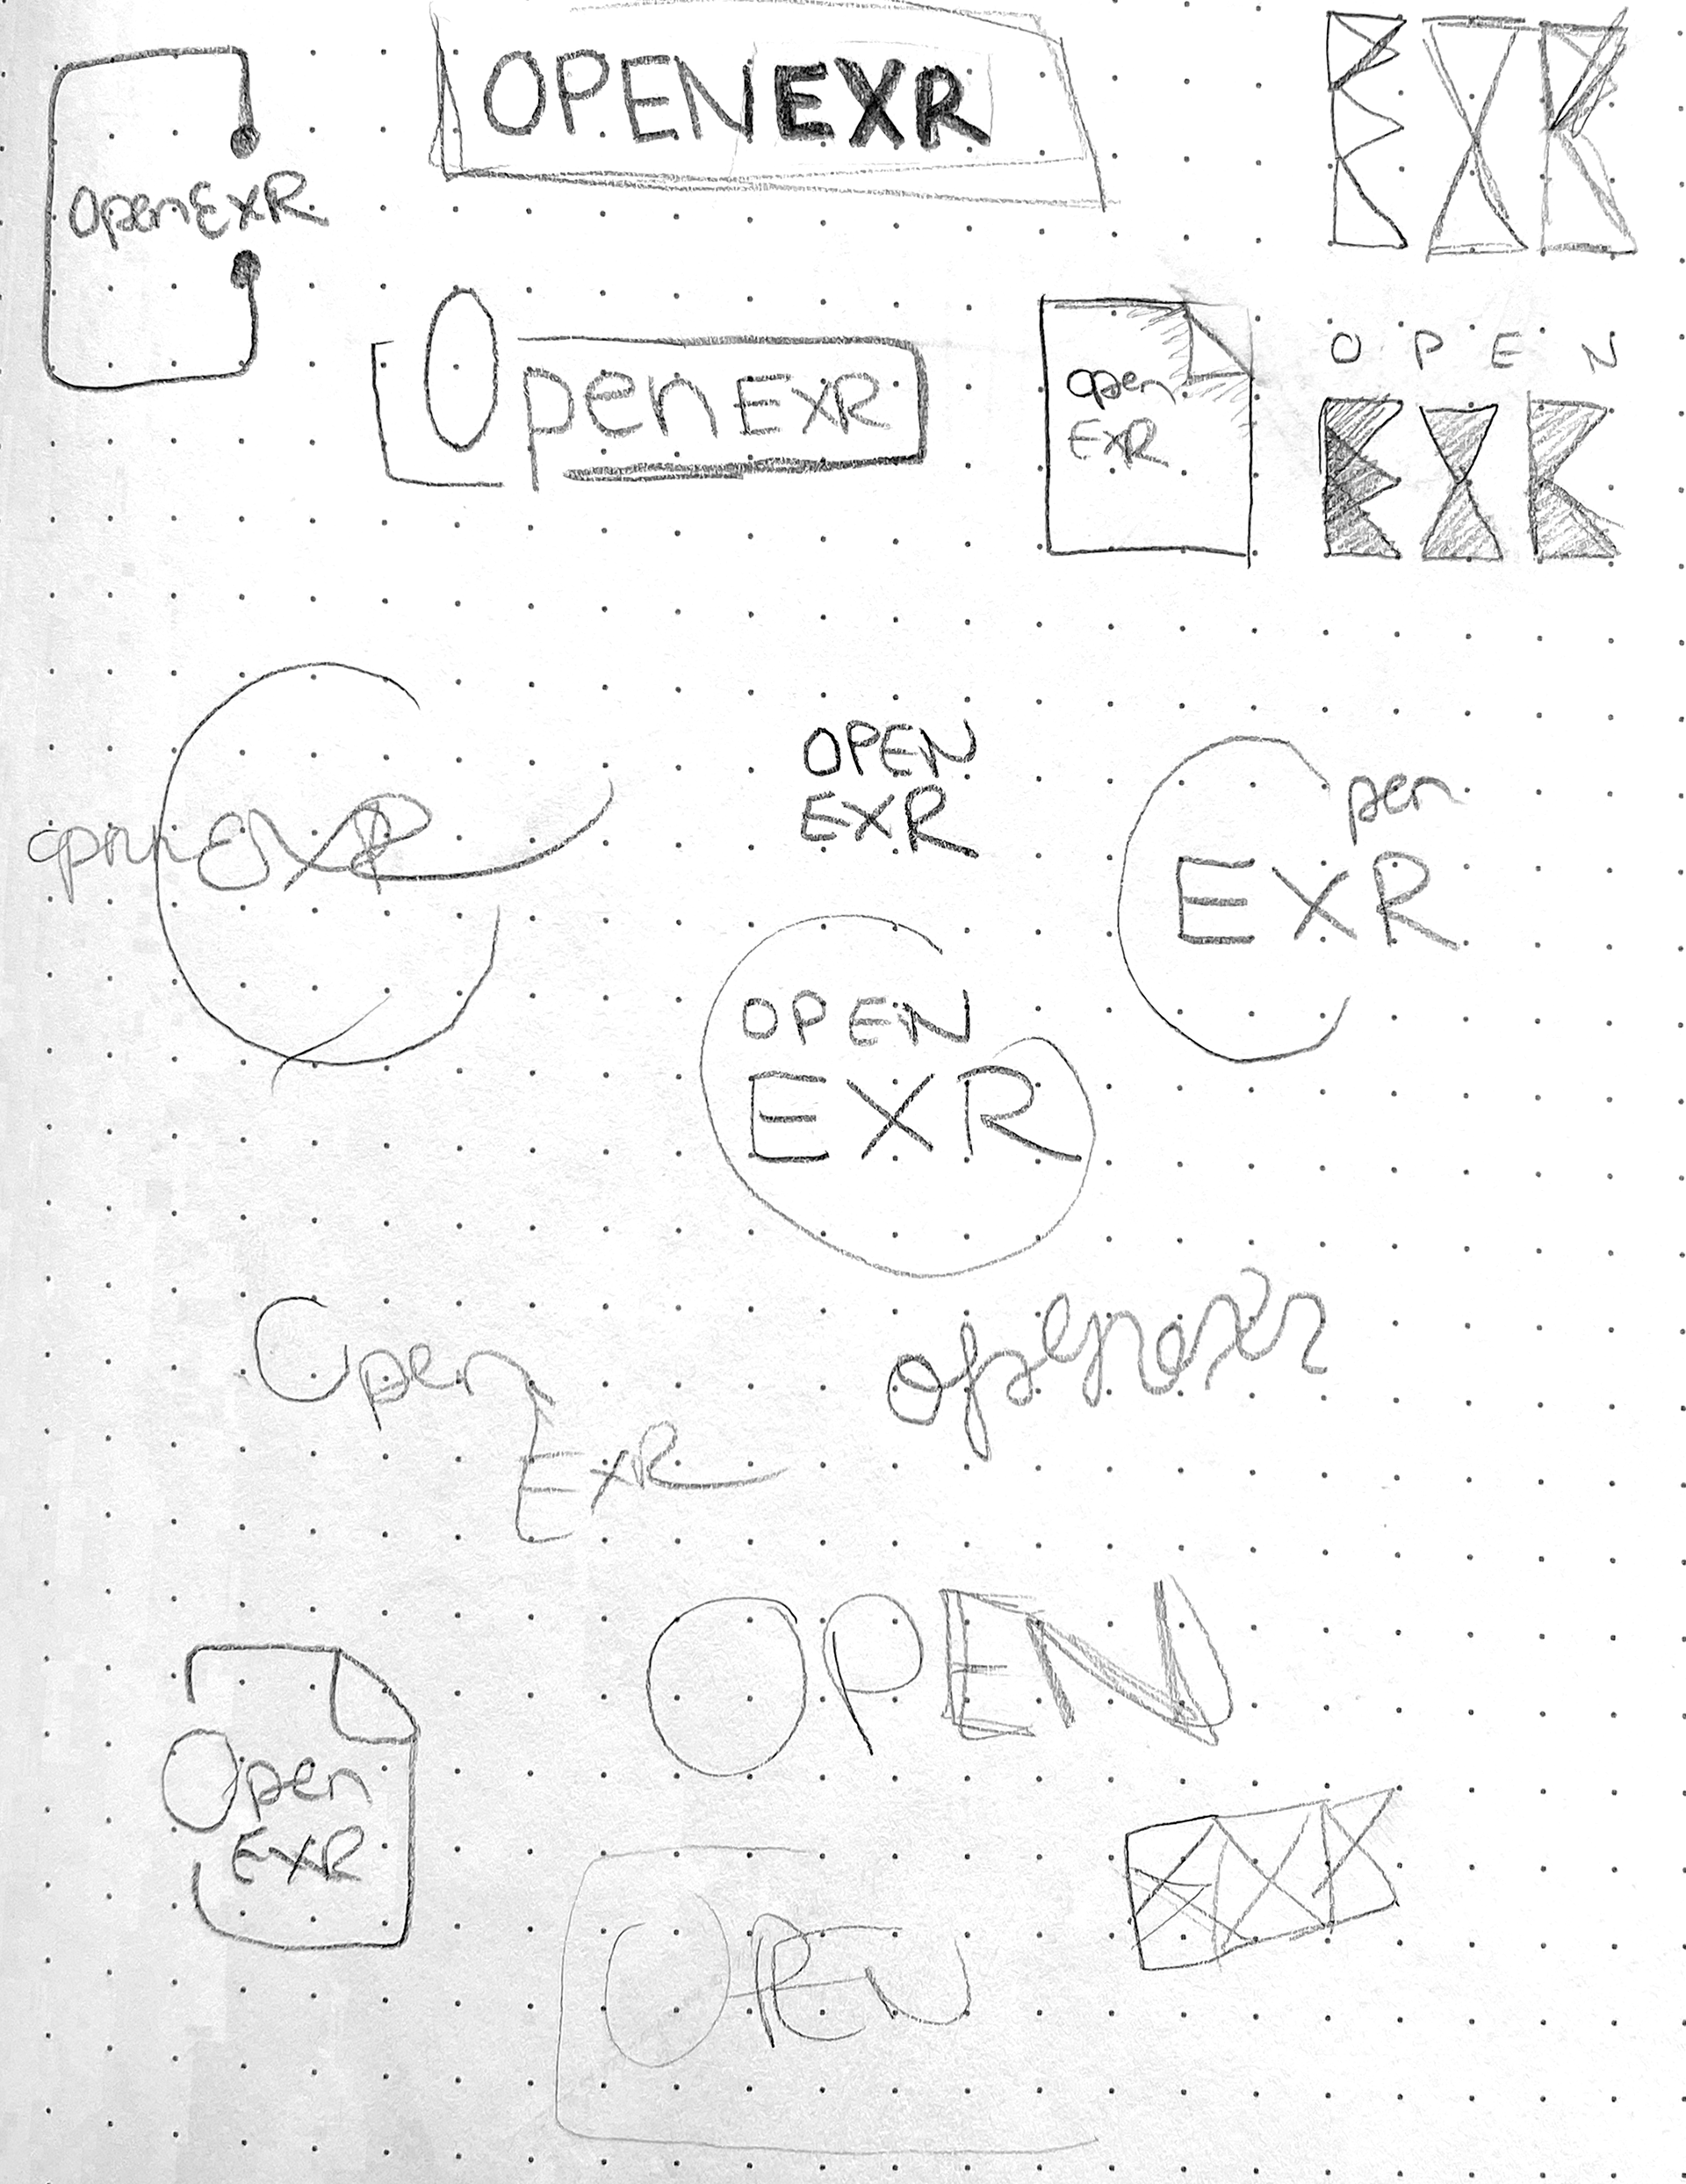 OPENEXR
EXR
OpenEXR
OpenEXR
open
EXR
OPEN
EXR
OPEN
EXR
pen
EXR
openEXR
OPEN
EXR
Open
EXR
openexr
OPEN
Open
EXR
EXR
OPEN